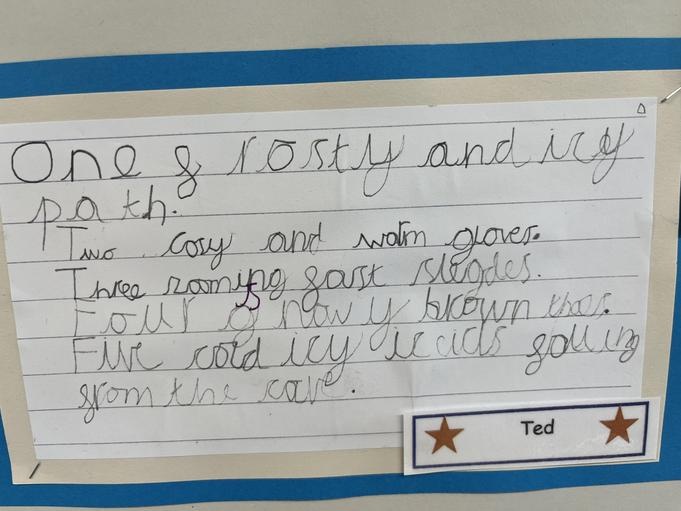 One frosty and icy
path.
Two cosy and warm gloves.
Three zooming fast slegdes.
Four snowy brown
Five cold icy icicls falling
from the cave.
Ted